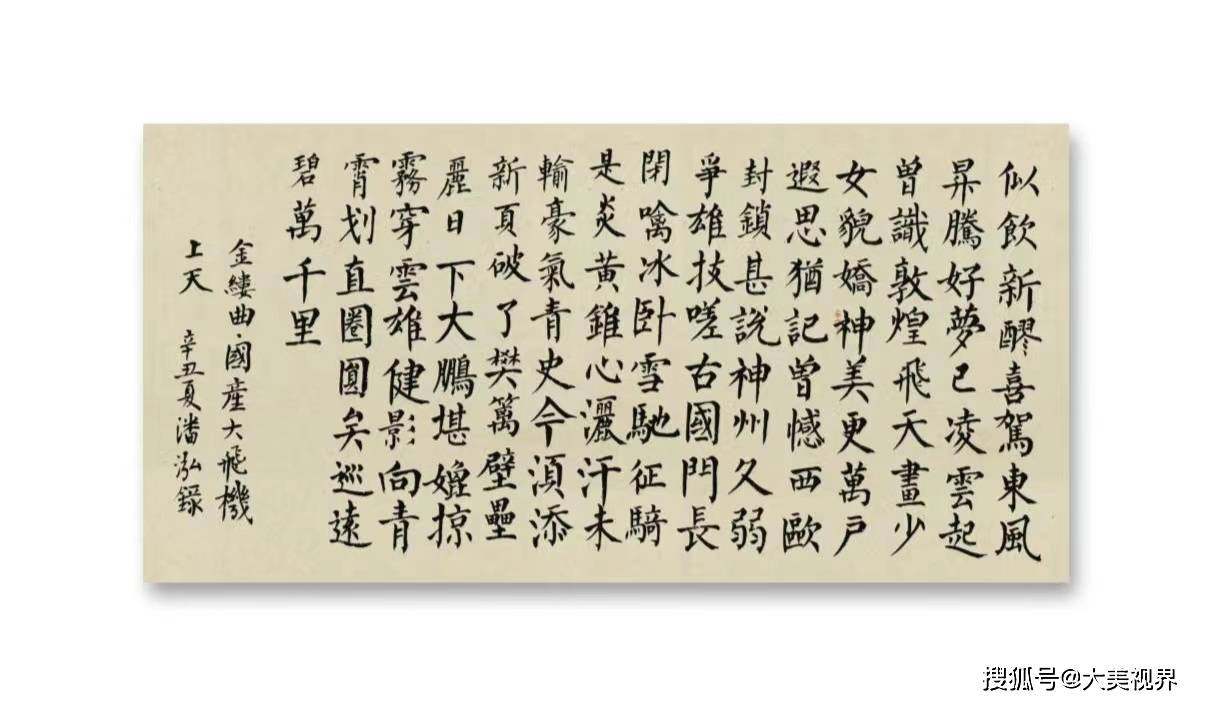 似飲新醪喜駕東風
昇騰好夢已凌雲起
曾識敦煌飛天畫少
女貌嬌神美更萬戶
遐思猶記曾憾西歐
封鎖甚說神州久弱
爭雄技嗟古國門長
閉噙冰卧雪馳征騎
是炎黃錐心灑汗未
輸豪氣青史今須添
新頁破了樊篱壁壘
麗日下大鵬堪嬗掠
霧穿雲雄健影向青
霄划直圈圓矣巡遠
碧萬千里
金縷曲國產大飛機
上天 辛丑夏潘泓錄
搜狐号@大美视界